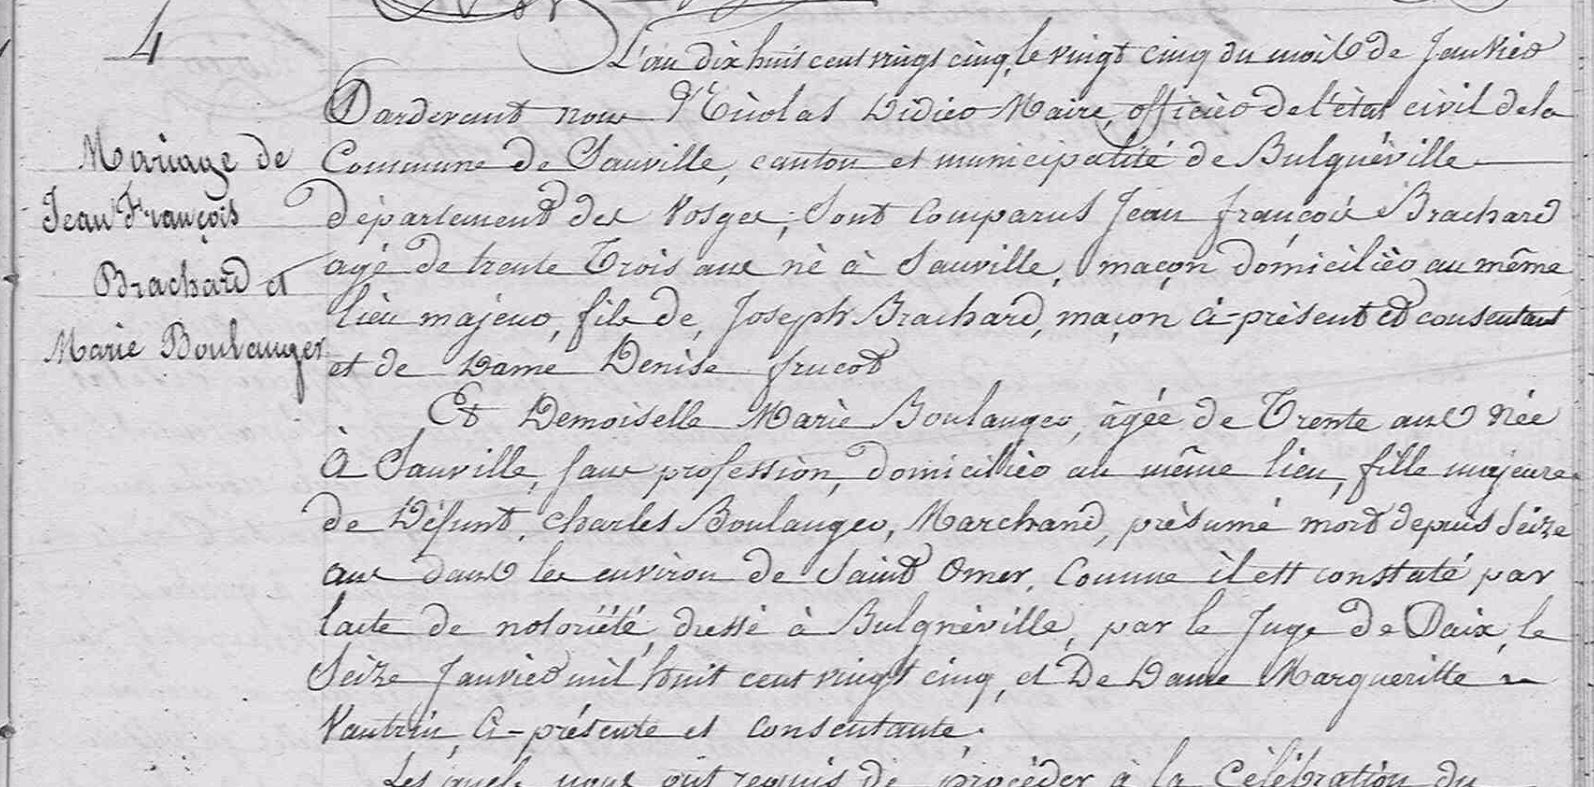 4
Mariage de
Jean François
Brachard et
Marie Boulanger
L'an dix huit cent vingt cinq, le vingt cinq du mois de Janvier
Pardevant nous Nicolas Didier Maire, officier de l'état civil de la
Commune de Sauville, canton et municipalité de Bulgnéville
département des Vosges, Sont Comparus Jean françois Brachard
agé de trente Trois ans né à Sauville, maçon domicilièr au même
lieu majeur, fils de, Joseph Brachard, maçon Ci-présent et consentant
et de Dame Denise frucot
Et Demoiselle Marie Boulanger, âgée de Trente ans Née
à Sauville, sans profession, domicilièr au même lieu, fille majeure
de Défunt, Charles Boulanger, Marchand, présumé mort depuis Seize
ans dans les environ de Saint Omer, Comme il est constaté par
lacte de notoriété, dressé à Bulgnéville, par le Juge de Paix, le
Seize Janvier mil huit cent vingt cinq, et De Dame Margueritte
Vautrin, Ci-présente et consentante.
Les quels nous ont requis de procéder à la Célébration du